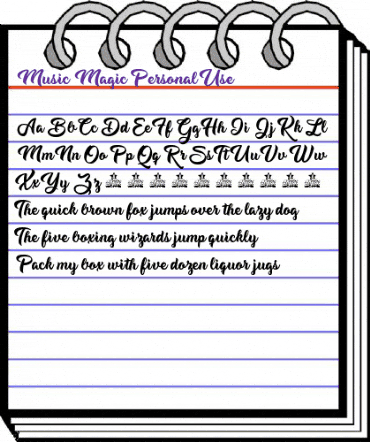 Music Magic Personal Use
Aa Bb Cc Dd Ee Ff Gg Hh Ii Jj Kk Ll
Mm Nn Oo Pp Qq Rr Ss Tt Uu Vv Ww
Xx Yy Zz
The quick brown fox jumps over the lazy dog
The five boxing wizards jump quickly
Pack my box with five dozen liquor jugs